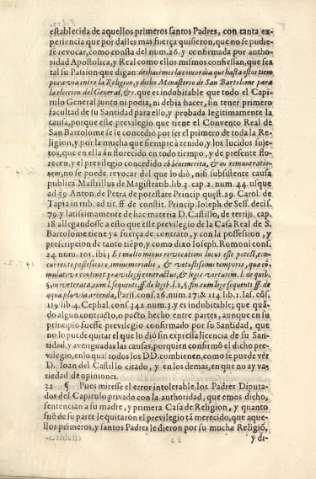 establecida de aquellos primeros santos Padres, con tanta ex-
periencia que por dalles mas fuerça quisieron, que no se pudie-
se revocar, como consta del num. 26. y confirmada por autho-
ridad Apostolica, y Real como ellos mismos confiessan, que sea
tal su Passion que digan
para con esta Religion, y dicho Monasterio de San Bartolome para
la eleccion del General, &c. que es indobitable que todo el Capi-
tulo General junto ni podia, ni debia hacer, sin tener primero
facultad de su Santidad para ello, y probada legitimamente la
causa, porque esse previlegio que tiene el Convento Real de
San Bartolome se le concediò por ser el primero de toda la Re-
ligion, y por la mucha que siempre à tenido, y los lucidos suje-
tos, que en ella àn florecido en todo tiempo, y de presente flo-
recen, y el previlegio concedido ob bene merita, & in remuneratio-
nem, no se puede revocar del que lo diò, nisi subsistente causa
publica Mastrillus de Magistratib. lib. 3. cap. 2. num. 44. usque
ad 59. Anton. de Petra de potestate Princip. quæst. 29. Carol. de
Tapia in rub. ad tit. ff. de constit. Princip. Ioseph de Sess. decis.
79. y latissimamente de hac materia D. Castillo, de tertijs, cap.
18. allegandose à ello que este previlegio de la Casa Real de S.
Bartolome tiene ya fuerça de contrato, y con la possession, y
prescripcion de tanto tiepo, y como dixo Ioseph. Rumoni conf.
24. num. 101. ibi; Et multo minus revocationi locus esse potest, con-
currente possessione, immemorabili, & vetustissimi temporis, quæ æ-
mulatur contractus privilegij, & legis virtutem. l. in quib.
ff. de legib. l. 2. §. fin cum lege sequenti ff. de
aqua pluvia arcenda, Paris. cons. 26. num. 27. & 114. lib. 1. Cas. cos.
119. lib. 4. Cephal. cons. 342. num. 3. y es indobitable; que quã-
do algun contracto, o pacto hecho entre partes, aunque en su
principio fuesse previlegio confirmado por su Santidad, que
no lo puede quitar el que lo diò sin expressa licencia de su San-
tidad, y averiguadas las causas, porque en confirmò el dicho pre-
vilegio, en lo qual todos los DD. combienen, como se puede vèr
D. Ioan del Castillo citado, y en los demas, en que no ay va-
riedad de opiniones.
22 ¶ Pues mirese el error intolerable, los Padres Diputa-
dos del Capitulo privado con la authoridad, que emos dicho,
sentencian a su madre, y primera Casa de Religion, y quanto
fuè de su parte le quitaron el previlegio tã merecido, que aque-
llos primeros, y santos Padres le dieron por su mucha Religiõ,
y di-